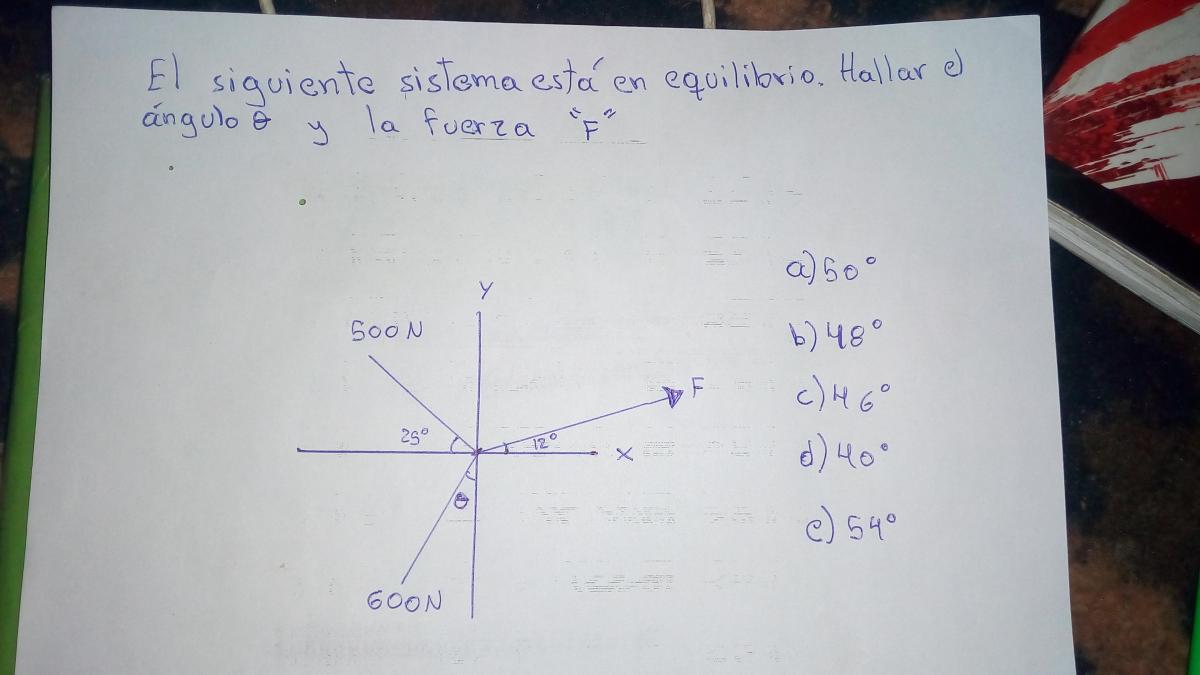 El siguiente sistema está en equilibrio. Hallar el
ángulo θ y la fuerza "F"
a) 50°
Y
500N
b) 48°
F
c) 46°
25° 12°
X
d) 40°
θ
e) 54°
600N